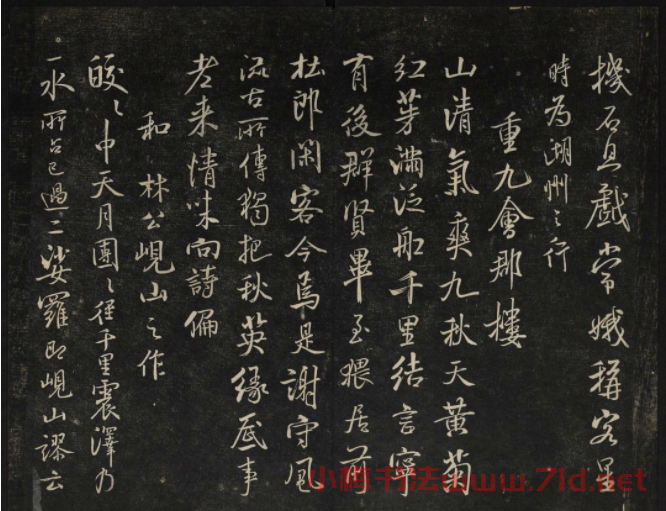 機石且戲常娥稱客星
時為湖州之行
重九會郡樓
山清氣爽九秋天黃菊
紅茱滿泛船千里結言寧
有後群賢畢至猥居前
杜郎閑客今焉是謝守風
流古所傳獨把秋英緣底事
老来情味向詩偏
和林公峴山之作
皎々中天月團々徑千里震澤乃
一水所占已過二娑羅即峴山謬云
小楷书法www.7ld.net